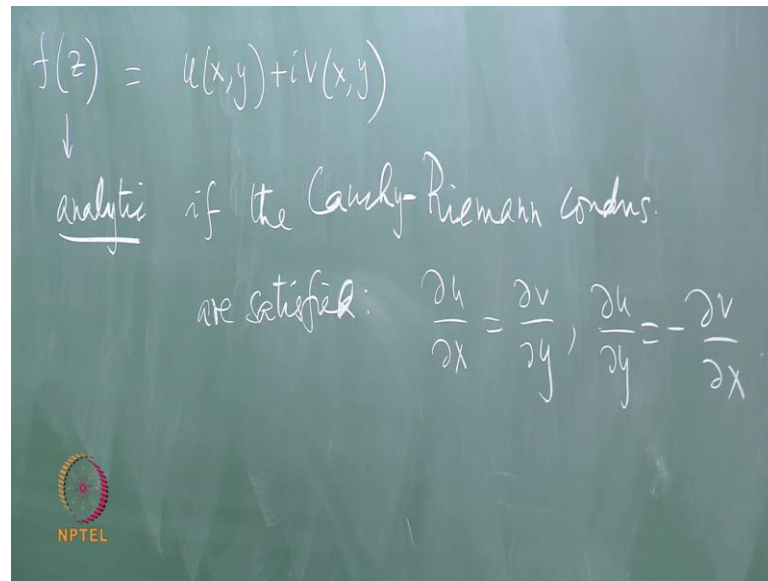 f(z) = u(x,y)+iv(x,y)
↓
analytic if the Cauchy-Riemann condns.
are satisfied: ∂u/∂x = ∂v/∂y, ∂u/∂y = -∂v/∂x.
NPTEL